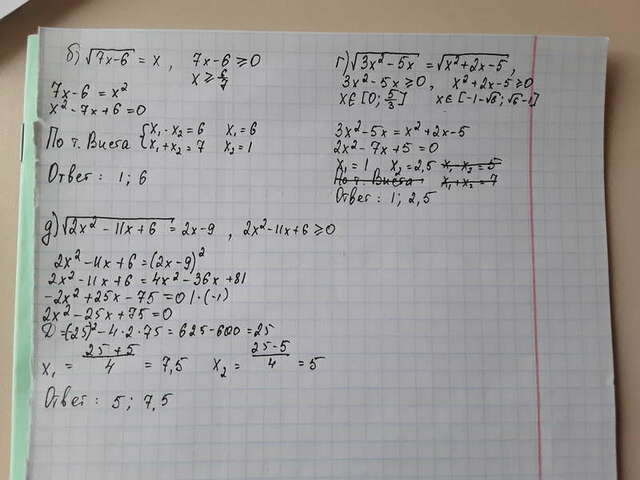 б) √7x-6 = x, 7x-6 ≥ 0
x ≥ 6/7
7x-6 = x²
x² - 7x + 6 = 0
По т. Виета { x₁ · x₂ = 6 x₁ = 6
x₁ + x₂ = 7 x₂ = 1
Ответ: 1; 6
г) √3x² - 5x = √x² + 2x - 5,
3x² - 5x ≥ 0, x² + 2x - 5 ≥ 0
x ∈ [0; 5/3] x ∈ [-1-√6; √6-1]
3x² - 5x = x² + 2x - 5
2x² - 7x + 5 = 0
x₁ = 1 x₂ = 2,5 x₁ · x₂ = 5
По т. Виета x₁ + x₂ = 7
Ответ: 1; 2,5
д) √2x² - 11x + 6 = 2x - 9, 2x² - 11x + 6 ≥ 0
2x² - 11x + 6 = (2x - 9)²
2x² - 11x + 6 = 4x² - 36x + 81
-2x² + 25x - 75 = 0 | · (-1)
2x² - 25x + 75 = 0
D = (25)² - 4 · 2 · 75 = 625 - 600 = 25
x₁ = 25 + 5 / 4 = 7,5 x₂ = 25 - 5 / 4 = 5
Ответ: 5; 7,5